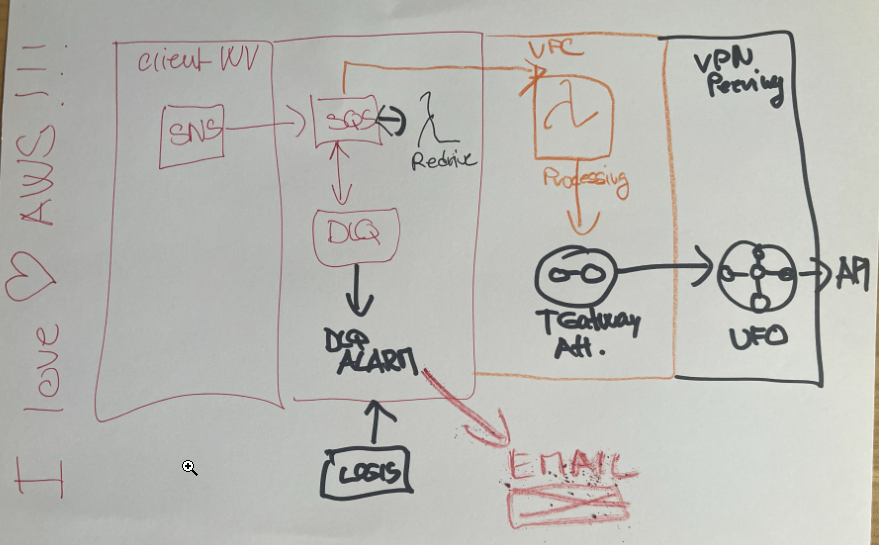 I love ♡ AWS!!!
client WV
SNS
SQS
Redrive
DLQ
DLQ
ALARM
LOGS
EMAIL
VPC
Processing
TGateway
Att.
VPN
Peering
UFO
API